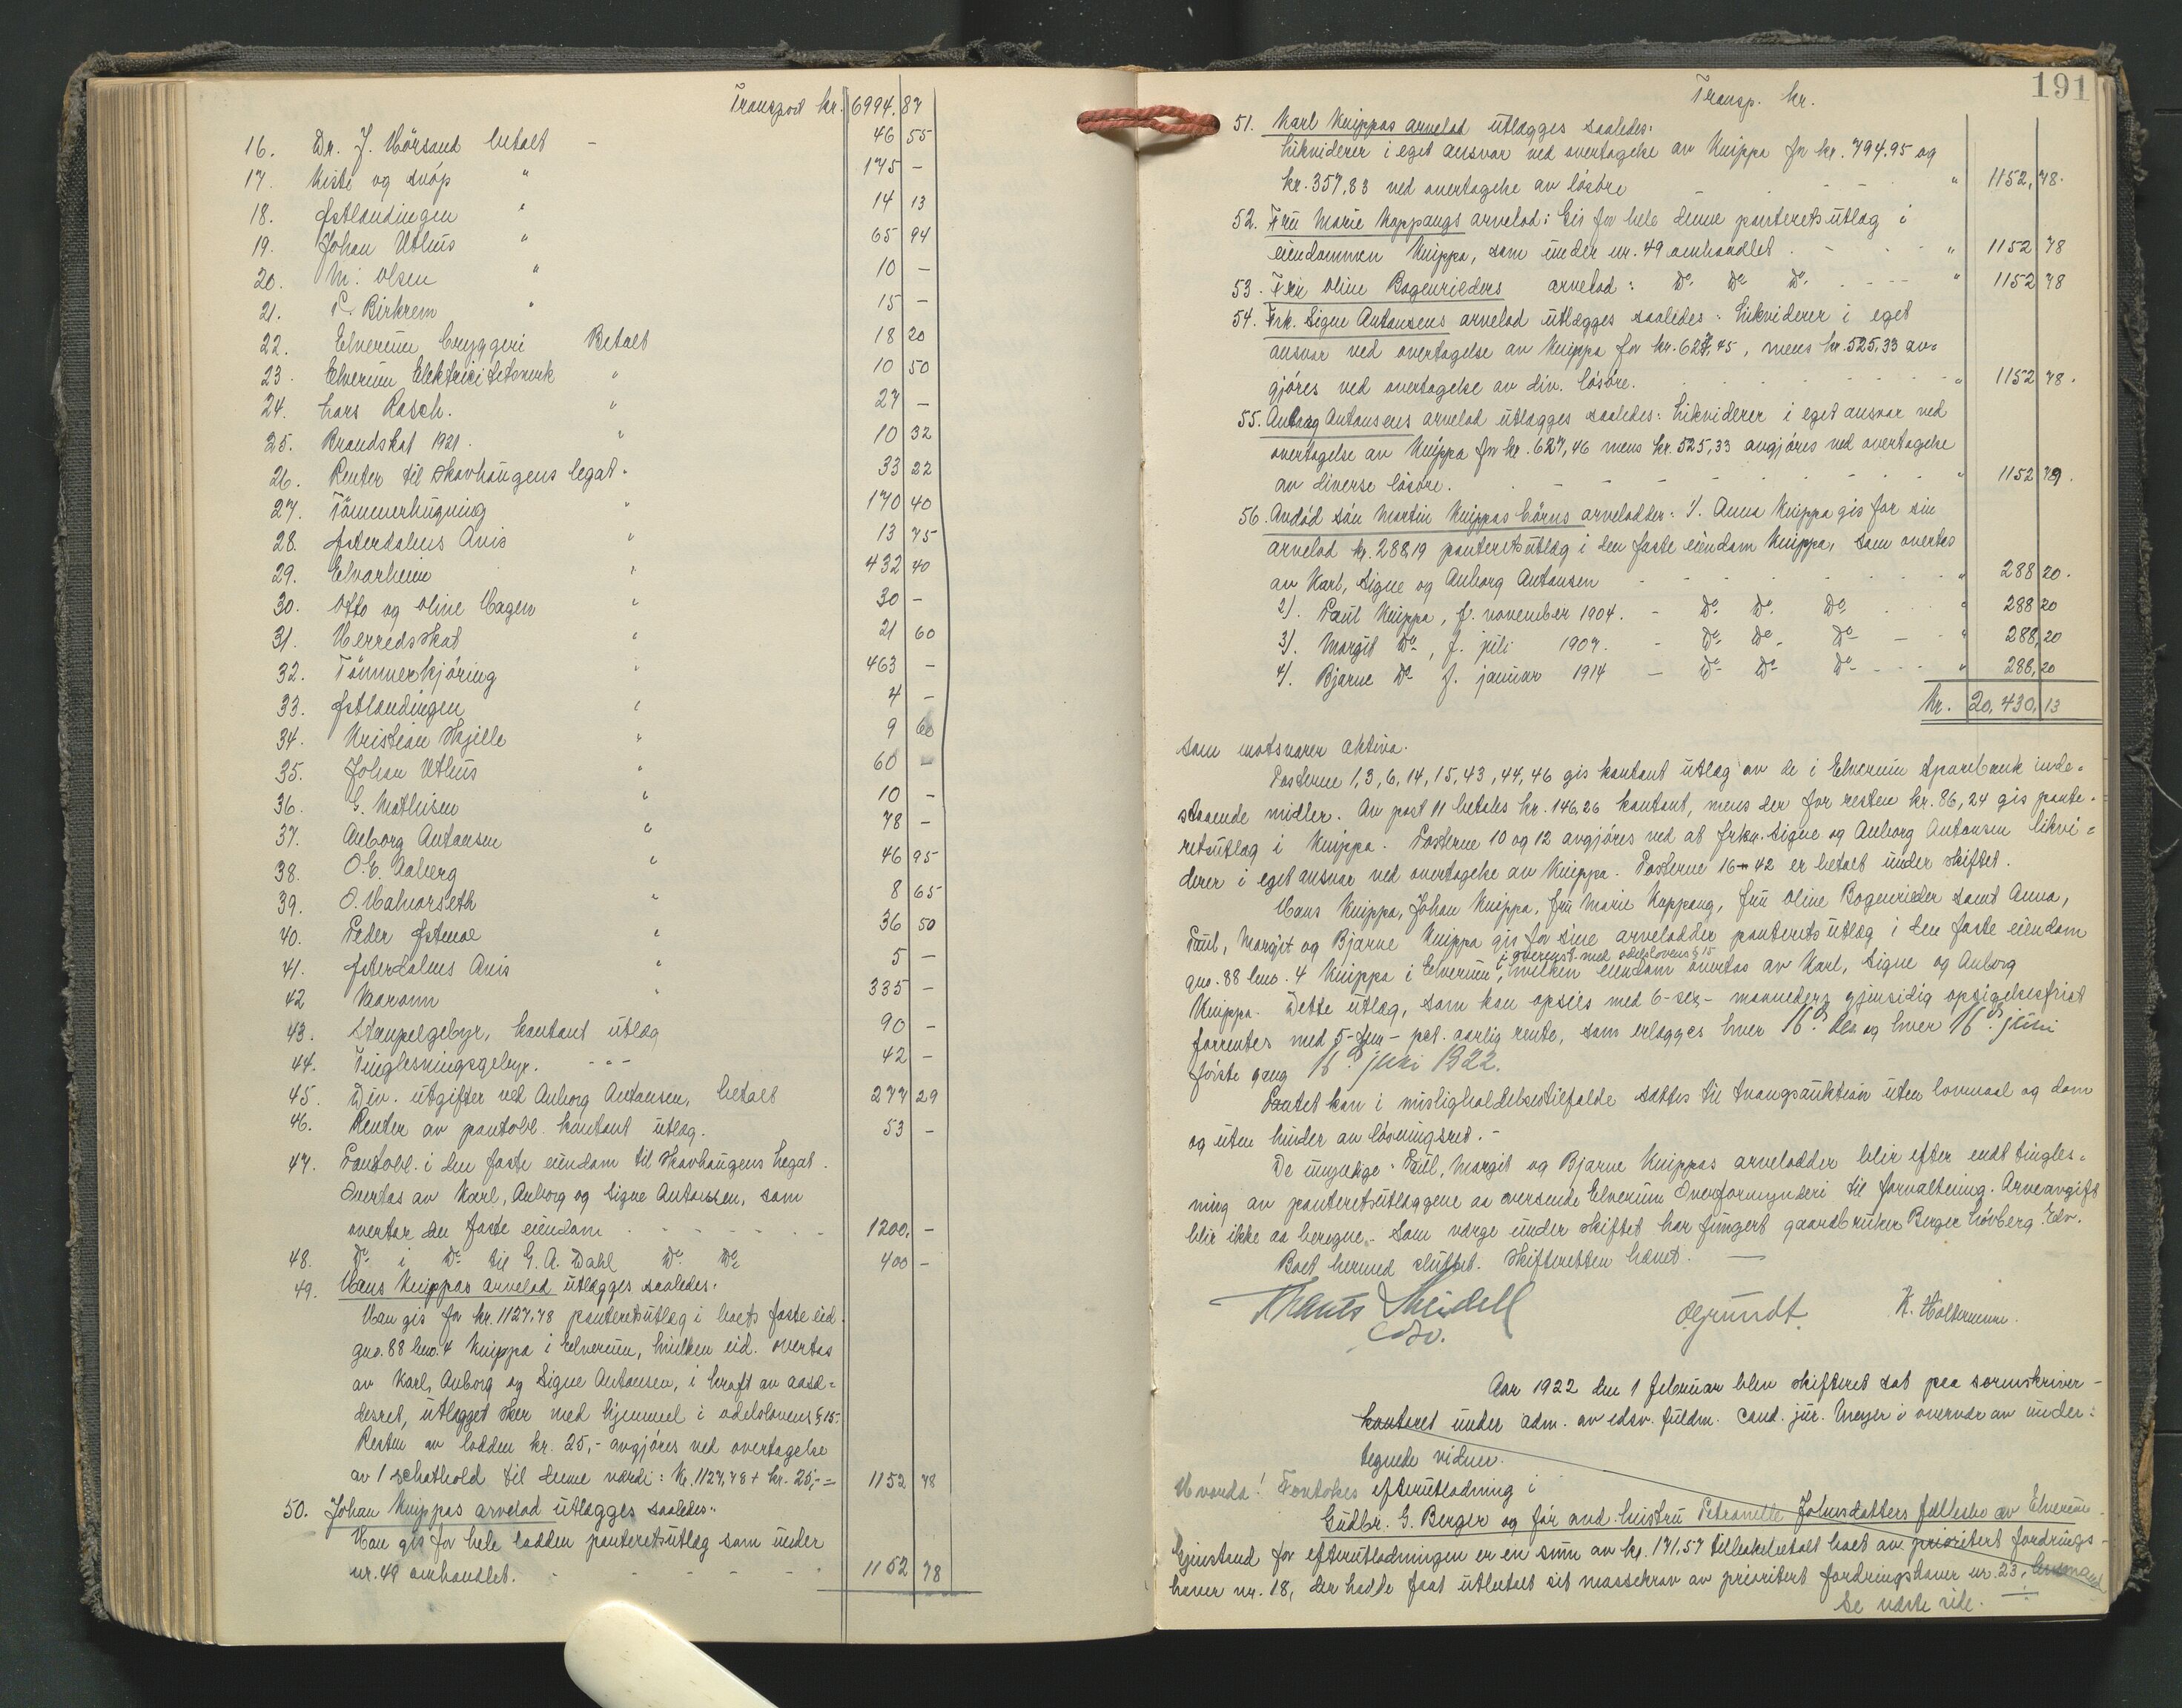 Transport kr. 6994.87
16. Dr. J. Hörsand betalt - 46 55
17. Kiste og svøp " 175 -
18. Østlendingen " 14 13
19. Johan Uthus " 65 94
20. M. Olsen " 10 -
21. P. Birkrem " 15 -
22. Elverum bryggeri Betalt 18 20
23. Elverum Elektricitetsverk " 10 50
24. Lars Rasch. " 27 -
25. Brandskat 1921. " 10 32
26. Renter til Skovhaugens legat. 33 22
27. Tømmerhugning " 170 40
28. Østerdalens Avis " 13 75
29. Elvarheim " 432 40
30. Otto og Oline Hagen " 30 -
31. Herredsskat " 21 60
32. Tømmerkjøring " 463 -
33. Østlendingen " 4 -
34. Kristian Skjille " 9 60
35. Johan Uthus " 60 -
36. G. Mathisen " 10 -
37. Anborg Antonsen " 78 -
38. O. E. Aaberg " 46 95
39. O. Halvorseth " 8 65
40. Peder Østmoe " 36 50
41. Østerdalens Avis " 5 -
42 Vaaronn " 335 -
43. Stempelgebyr, kontant utlæg 90 -
44. Tinglesningsgebyr. - " - 42 -
45. Div. utgifter ved Anborg Antonsen, betalt 277 29
46. Renter av pantobl. kontant utlæg. 53 -
47. Pantobl. i den faste eiendom til Skovhaugens Legat.
Overtas av Karl, Anborg og Signe Antonsen, som
overtar den faste eiendom - - - - 1200. -
48. Do i Do til G. A. Dahl Do Do 400 -
49. Hans Knippas arvelod utlægges saaledes:
Han gis for kr. 1127.78 panteretsutlæg i boets faste eid.
gno. 88 bno. 4 Knippa i Elverum, hvilken eid. overtas
av Karl, Anborg og Signe Antonsen, i kraft av aasæ-
desret, utlægget sker med hjemmel i odelslovens § 15-
Resten av lodden kr. 25,- avgjøres ved overtagelse
av 1 schathold til denne værdi: Kr. 1127,78 + kr. 25,- = 1152 78
50. Johan Knippas arvelod utlægges saaledes:
Han gis for hele lodden panteretsutlæg som under
nr. 49 omhandlet. - - - - 1152 78
191
Transp. kr.
51. Karl Knippas arvelod utlægges saaledes:
Likviderer i eget ansvar ved overtagelse av Knippa for kr. 794.95 og
kr. 357,83 ved overtagelse av løsøre - - - " 1152,78.
52. Fru Marie Koppangs arvelod: Gis for hele denne panteretsutlæg i
eiendommen Knippa, som under nr. 49 omhandlet. - - - " 1152 78
53. Fru Oline Bogenrieders arvelod: Do Do Do - - - " 1152 78
54. Frk. Signe Antonsens arvelod utlægges saaledes: Likviderer i eget
ansvar ved overtagelse av Knippa for kr. 627,45, mens kr. 525,33 av-
gjøres ved overtagelse av div. løsøre. " 1152 78.
55. Anborg Antonsens arvelod utlægges saaledes: Likviderer i eget ansvar ved
overtagelse av Knippa for kr. 627,46 mens kr. 525,33 avgjøres ved overtagelse
av diverse løsøre. - - - " 1152 79.
56. Avdød søn Martin Knippas børns arvelodder: 1). Anna Knippa gis for sin
arvelod kr. 288 19 panteretsutlæg i den faste eiendom Knippa, som overtas
av Karl, Signe og Anborg Antonsen - - - " 288 20.
2). Paul Knippa, f. november 1904. - Do Do Do " 288 20
3). Margit Do, f. juli 1907. - Do Do Do - " 288,20
4). Bjarne Do f. januar 1914 - Do Do Do - - - " 288,20
Kr. 20,430,13
som motsvarer aktiva.
Posterne 1, 3, 6, 14, 15, 43, 44, 46 gis kontant utlæg av de i Elverum Sparebank inde-
staaende midler. Av post 11 betales kr. 146.26 kontant, mens der for resten kr. 86,24 gis pante-
retsutlæg i Knippa. Posterne 10 og 12 avgjøres ved at frkn. Signe og Anborg Antonsen likvi-
derer i eget ansvar ved overtagelse av Knippa. Posterne 16-42 er betalt under skiftet.
Hans Knippa, Johan Knippa, fru Marie Koppang, fru Oline Bogenrieder samt Anna,
Paul, Margit og Bjarne Knippa gis for sine arvelodder panteretsutlæg i den faste eiendom
i overenst. med odelslovens § 15
gno. 88 bno. 4 Knippa i Elverum, hvilken eiendom overtas av Karl, Signe og Anborg
Knippa. Dette utlæg, som kan opsies med 6-sex- maaneders gjensidig opsigelsesfrist
forrentes med 5-fem- pct. aarlig rente, som erlægges hver 16de des og hver 16de juni
første gang 16de juni 1922.
Pantet kan i misligholdelsestilfælde sættes til tvangsauktion uten lovmaal og dom
og uten hinder av løsningsret. -
De umyndige: Paul, Margit og Bjarne Knippas arvelodder blir efter endt tingles-
ning av panteretsutlæggene aa oversende Elverum Overformynderi til forvaltning. Arveavgift
blir ikke aa beregne. Som værge under skiftet har fungert gaardbruker Berger Løvberg Elv.
Boet hermed sluttet. Skifteretten hævet.
Meidell
edsv.
OGrundt. K. Holtermann.
Aar 1922 den 1 februar blev skifteret sat paa sorenskriver-
kontoret under adm. av edsv. fuldm. cand. jur. Meyer i overvær av under-
tegnede vidner.
Hvorda! Foretokes efterutlodning i
Gudbr. G. Berger og før avd. hustru Petronelle Johnsdatters fællesbo av Elverum.
Gjenstand for efterutlodningen er en sum av kr. 171.57 tilbakebetalt boet av prioritert fordrings-
haver nr. 18, der hadde faat utbetalt sit massekrav av prioritert fordringshaver nr. 23,
Se næste side.